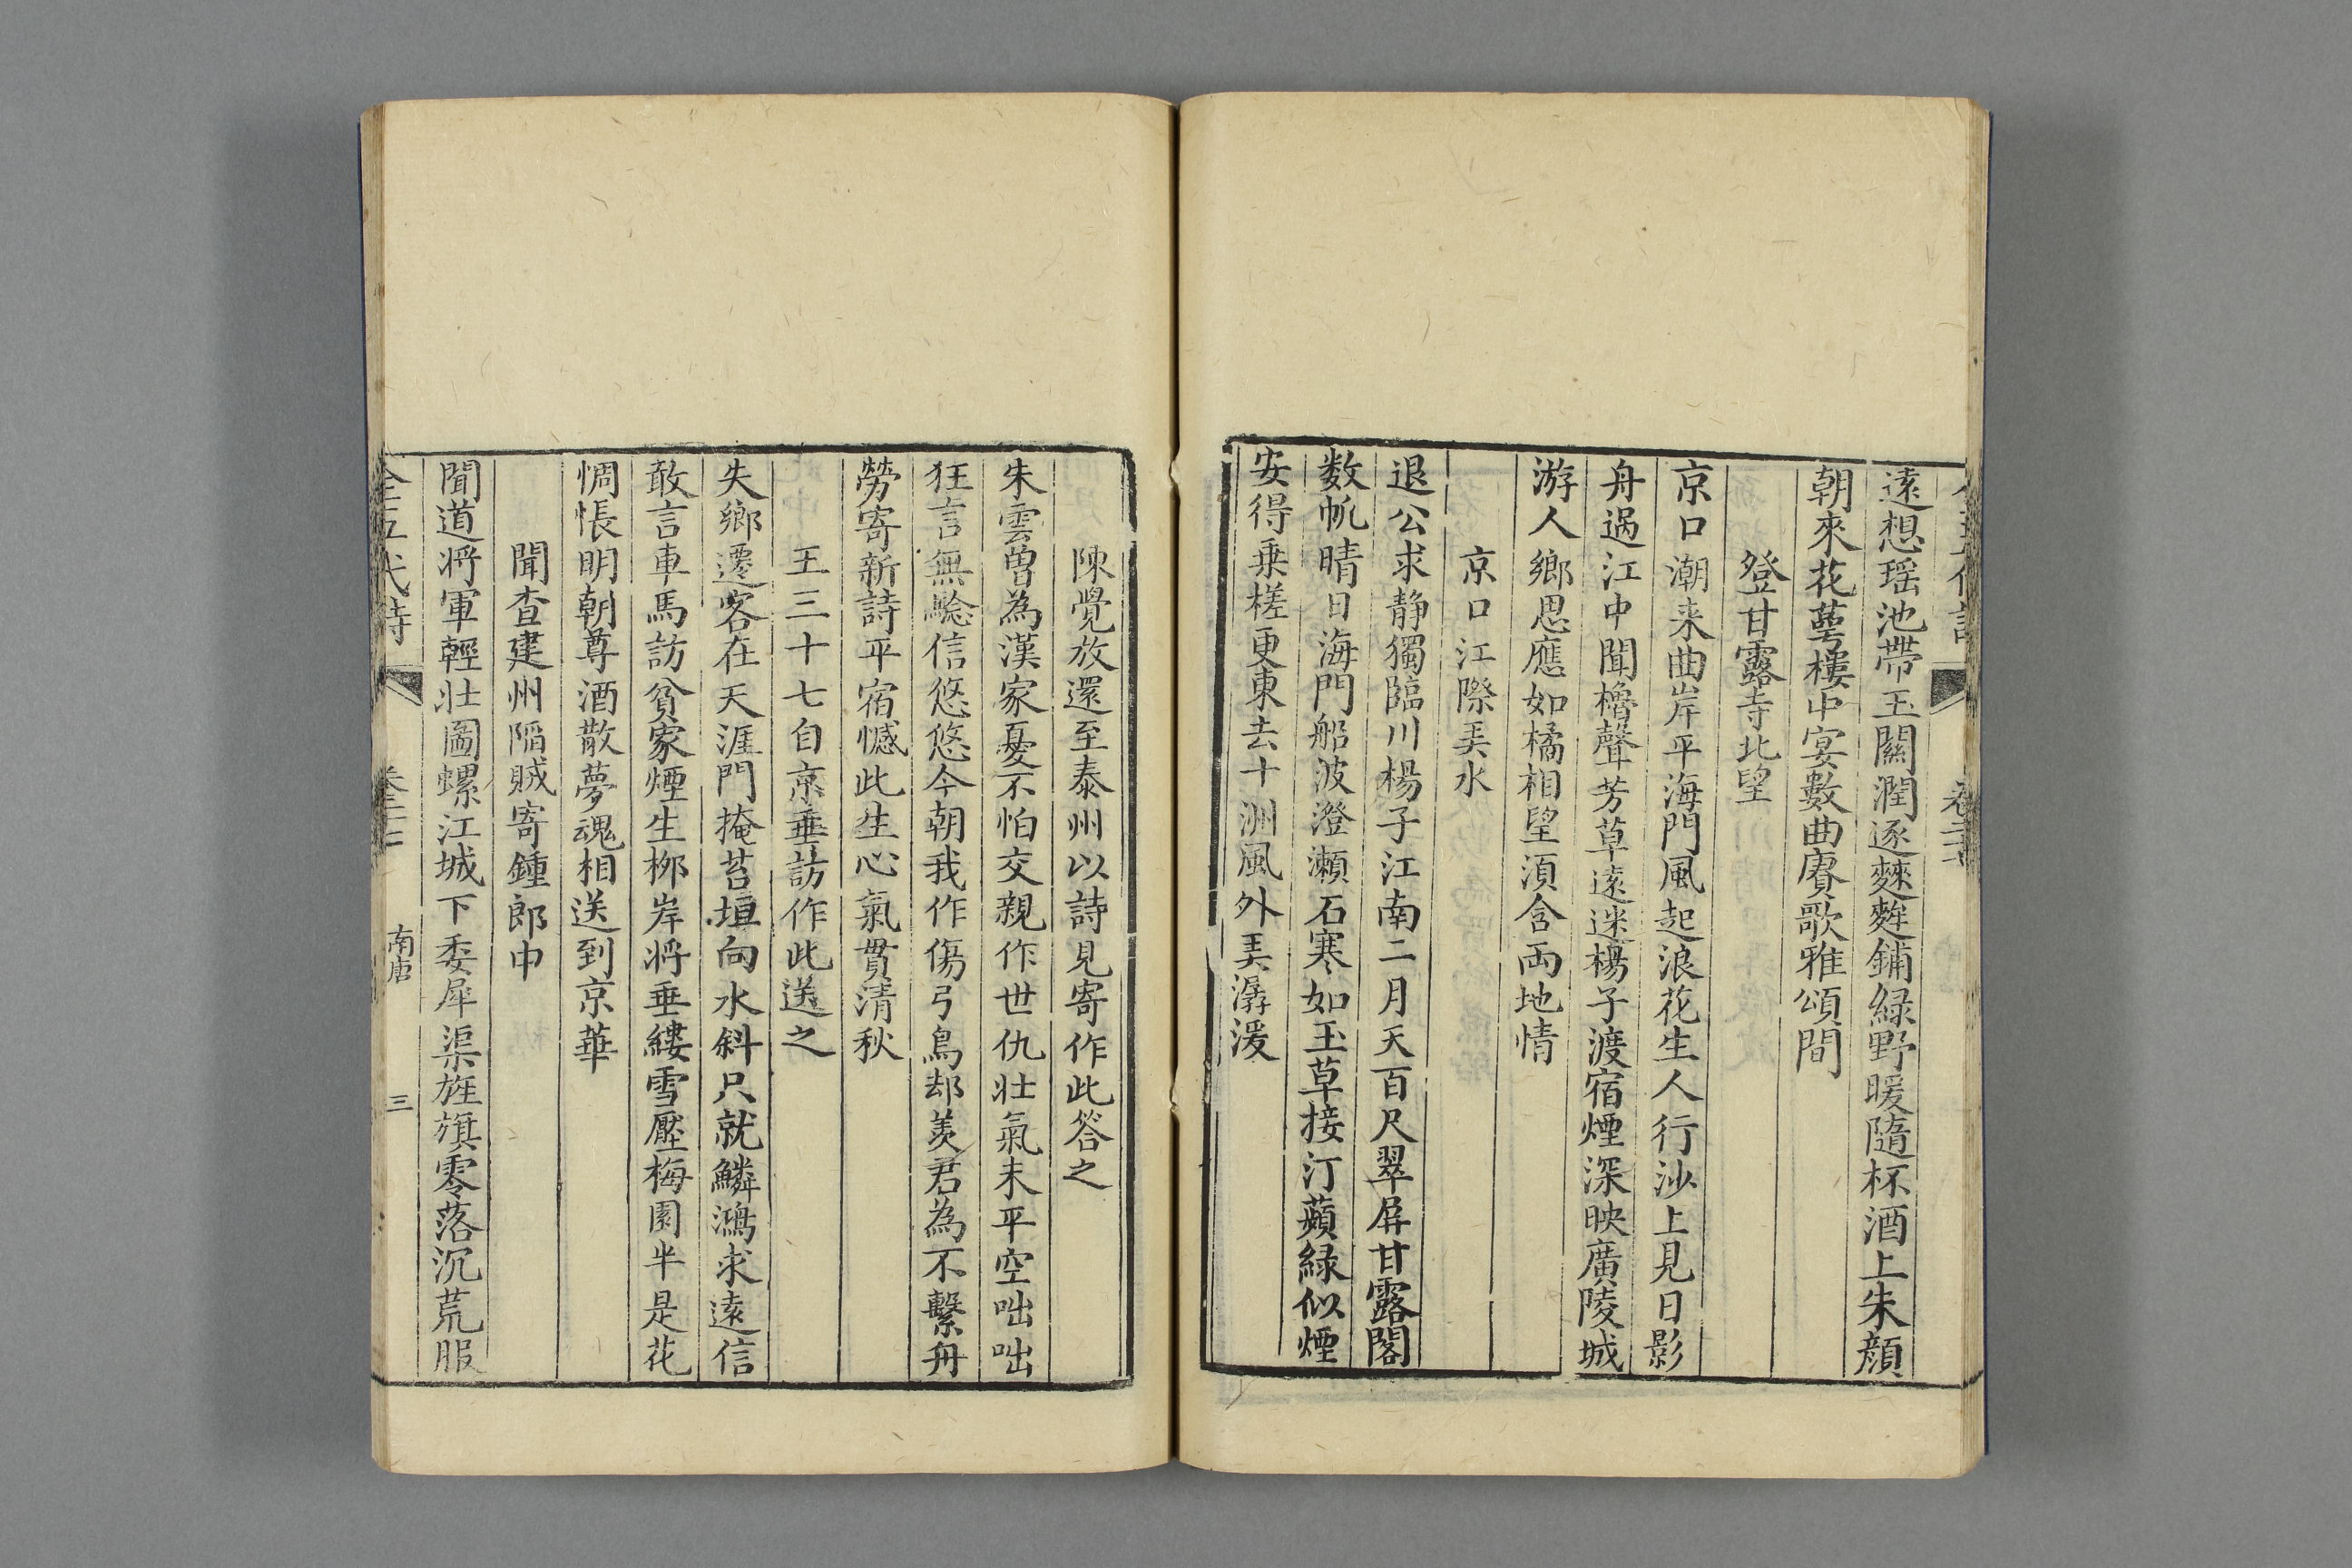 遠想瑶池帶玉關潤逐麰麰鋪緑野暖隨杯酒上朱顔
朝來花萼樓中宴數曲賡歌雅頌間
登甘露寺北望
京口潮来曲岸平海門風起浪花生人行沙上見日影
舟過江中聞櫓聲芳草遠迷楊子渡宿煙深映廣陵城
游人鄉思應如橘相望湏含両地情
京口江際弄水
退公求静獨臨川楊子江南二月天百尺翠屏甘露閣
数帆晴日海門船波澄瀬石寒如玉草接汀蘋緑似煙
安得乗槎更東去十洲風外弄潺湲
陳覺放還至泰州以詩見寄作此答之
朱雲曽為漢家憂不怕交親作世仇壮氣未平空咄咄
狂言無驗信悠悠今朝我作傷弓鳥却羨君為不繫舟
勞寄新詩平宿憾此生心氣貫清秋
王三十七自京垂訪作此送之
失鄉遷客在天涯門掩苔垣向水斜只就鱗鴻求遠信
敢言車馬訪貧家煙生栁岸將垂縷雪壓梅園半是花
惆悵明朝尊酒散夢魂相送到京華
聞查建州陷賊寄鍾郎中
聞道將軍輕壮圖螺江城下委犀渠旌旗零落沉荒服
全五代詩
卷三十七
南唐
三